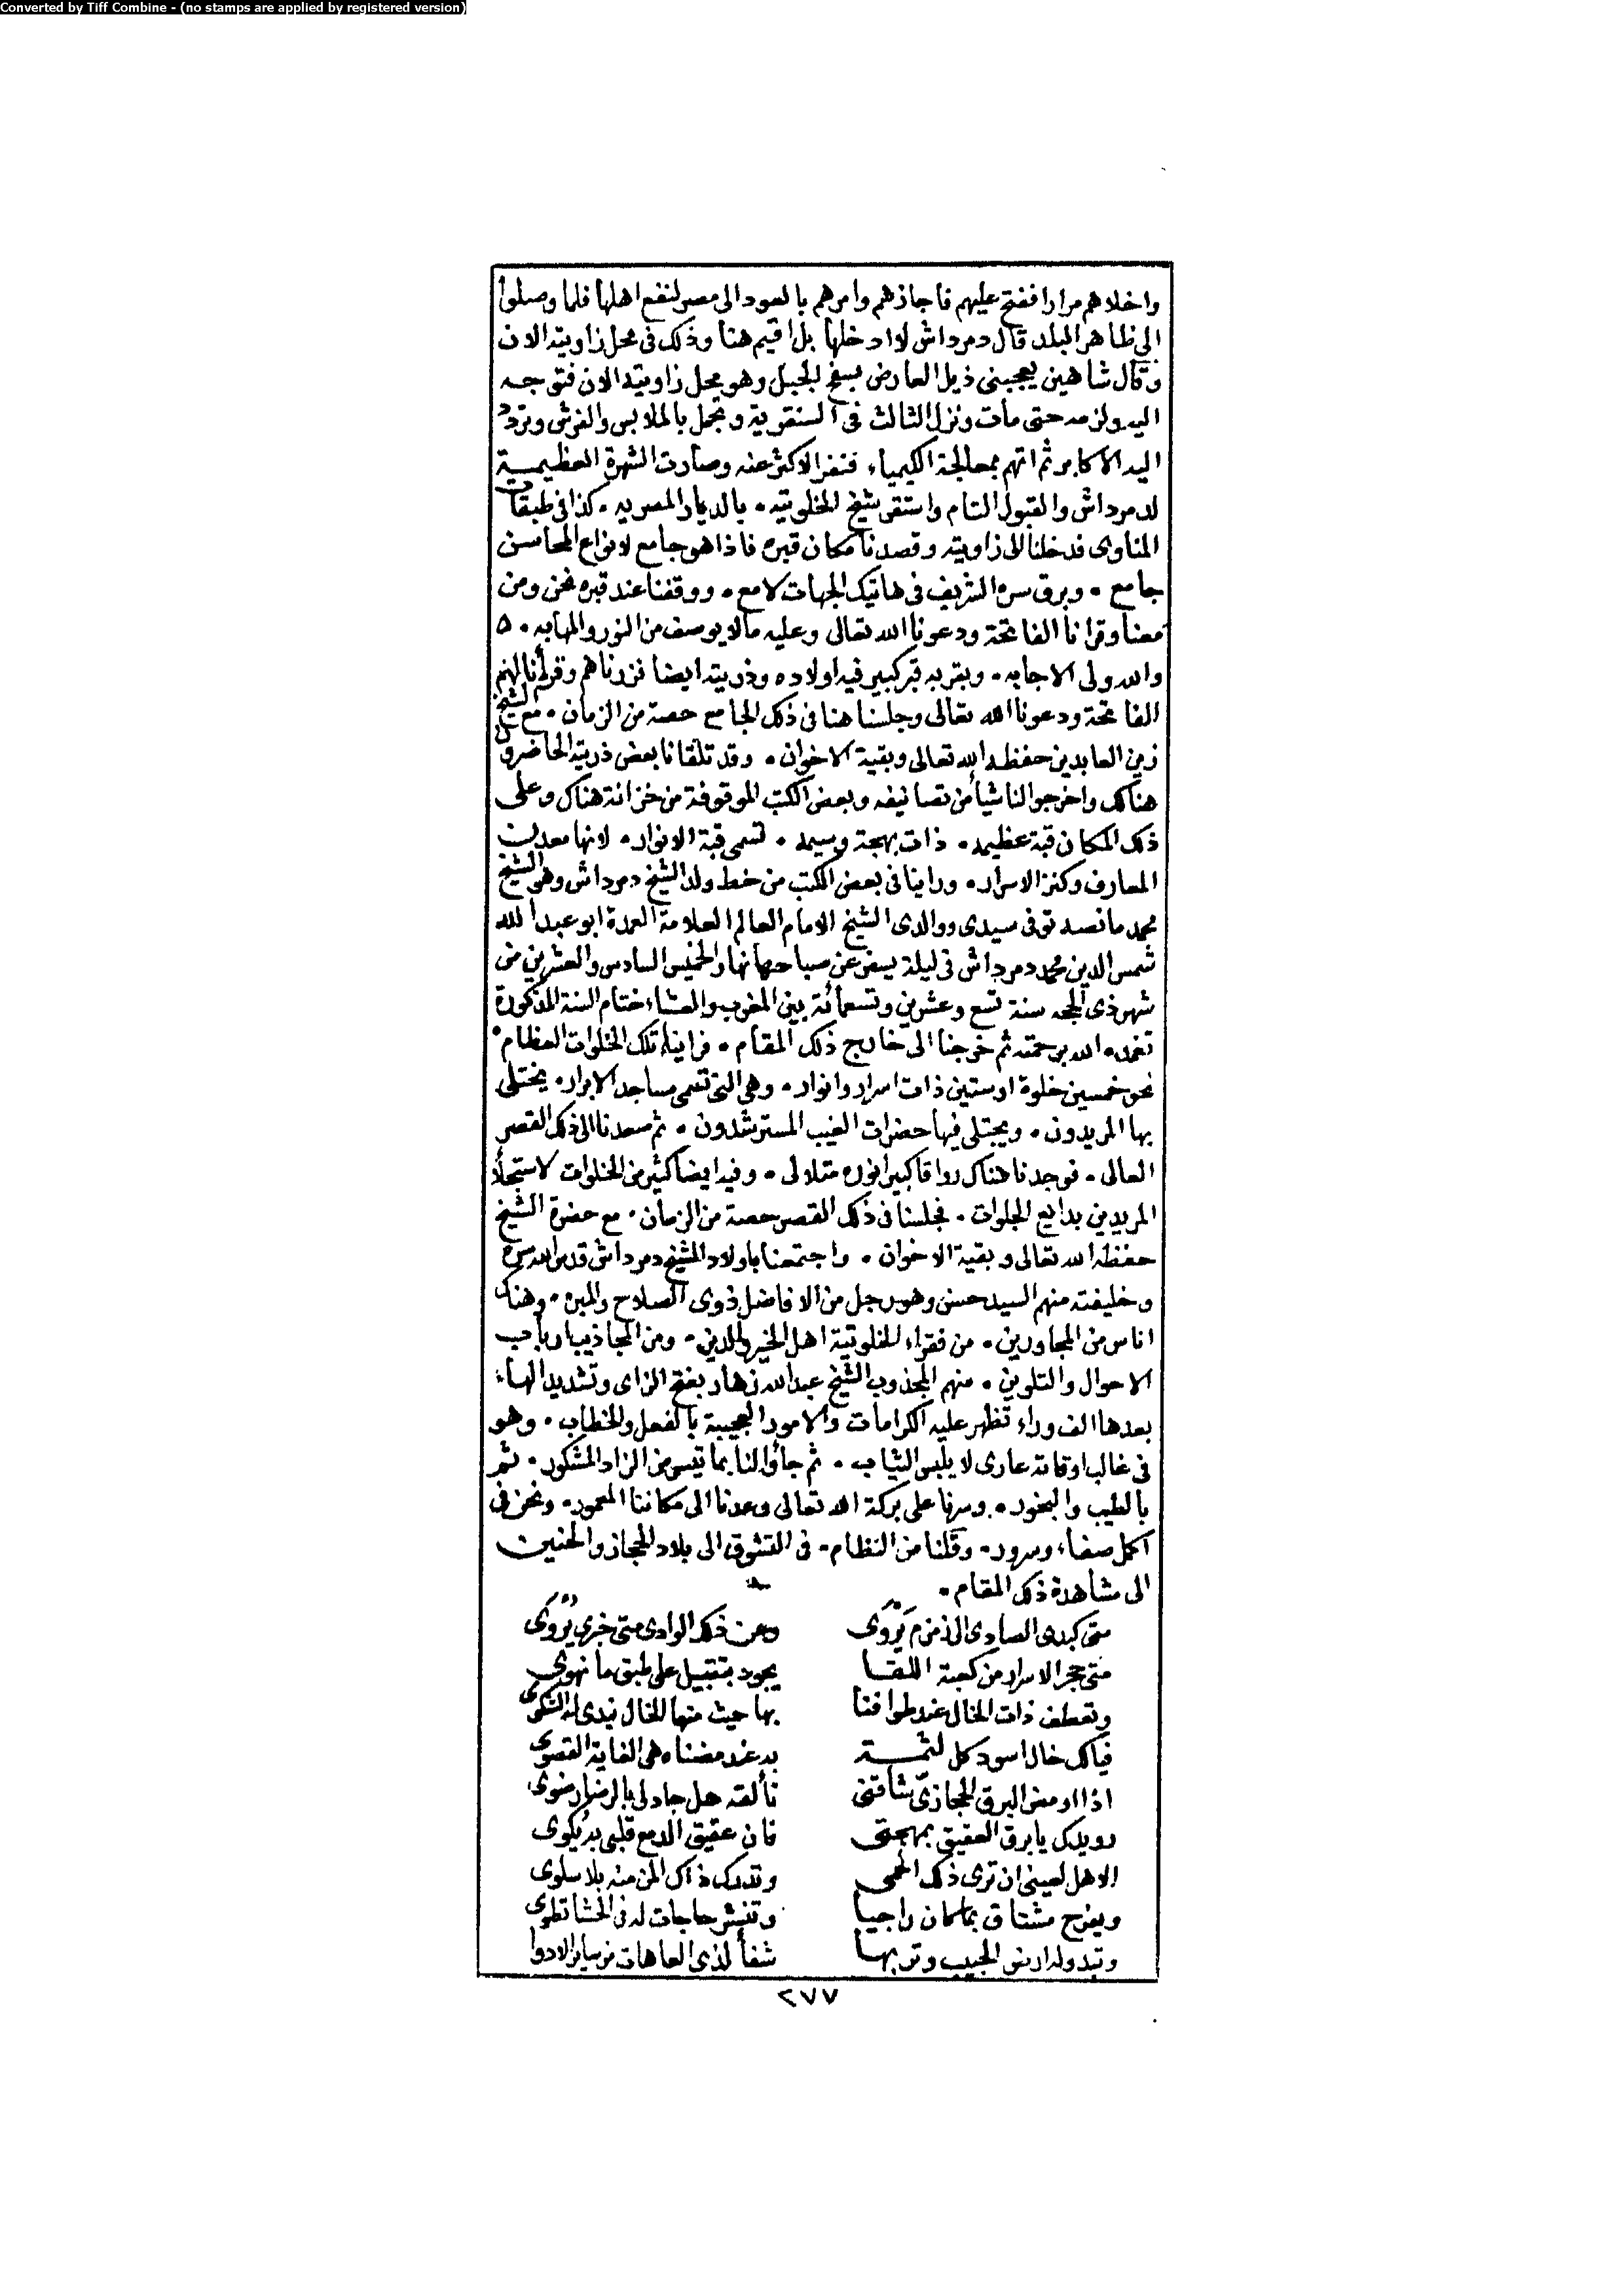 Converted by Tiff Combine - (no stamps are applied by registered version)
واخلاهم مرارا ففتح عليهم فاجازهم وامرهم بالعود الى مصر لنفع اهلها فلما وصلوا
الى ظاهر البلد قال دمرداش لا ادخلها بل اقيم هنا وذلك فى محل زاويته الان
وقال شاهين يعجبنى ذيل العارض بسفح الجبل وهو محل زاويته الان فتوجه
اليه ولزمه حتى مات ونزل الثالث فى السنقورية وتجمل بالملابس والفرش وتردد
اليه الاكابر ثم اتهم بمعالجة الكيمياء فنفر الاكثر عنه وصارت الشهرة العظيمة
لدمرداش والقبول التام واستقر شيخ الخلوتيه . بالديار المصريه . كذا فى طبقات
المناوى فدخلنا الى زاويته وقصدنا مكان قبره فاذا هو جامع لانواع المحاسن
جامع . وبرق سره الشريف فى هاتيك الجهات لامع . ووقفنا عند قبره نحن ومن
معنا وقرانا الفاتحة ودعونا الله تعالى وعليه ما لا يوصف من النور والمهابه .
والله ولى الاجابه . وبقربه قبر كبير فيه اولاده وذريته ايضا فزرناهم وقرأنا لهم
الفاتحة ودعونا الله تعالى وجلسنا هنا فى ذلك الجامع حصة من الزمان . مع الشيخ
زين العابدين حفظه الله تعالى وبقية الاخوان . وقد تلقانا بعض ذريته الحاضرون
هناك واخرجوا لنا شيأ من تصانيفه وبعض الكتب الموقوفة من خزانة هناك وعلى
ذلك المكان قبة عظيمه . ذات بهجة وسيمه . تسمى قبة الانوار . لانها معدن
المعارف وكنز الاسرار . وراينا فى بعض الكتب من خط ولد الشيخ دمرداش وهو الشيخ
محمد ما نصه توفى سيدى ووالدى الشيخ الامام العالم العلامة العمدة ابو عبد الله
شمس الدين محمد دمرداش فى ليلة يسفر عن صباحها نهار الخميس السادس والعشرين من
شهر ذى الحجه سنة تسع وعشرين وتسعمائة بين المغرب والعشاء ختام السنة المذكورة
تغمده الله برحمته ثم خرجنا الى خارج ذلك المقام . فراينا تلك الخلوات العظام .
نحو خمسين خلوة او ستين ذات اسرار وانوار . وهى التى تسمى مساجد الابرار . يختلى
بها المريدون . ويجتلى فيها حضرات الغيب المسترشدون . ثم صعدنا الى ذلك القصر
العالى . فوجدنا هناك رواقا كبيرا نوره متلالى . وفيه ايضا كثير من الخلوات لاستجلاء
المريدين بدايع الجلوات . فجلسنا فى ذلك القصر حصة من الزمان . مع حضرة الشيخ
حفظه الله تعالى وبقية الاخوان . واجتمعنا باولاد الشيخ دمرداش قدس الله سره
وخليفته منهم السيد حسن وهو رجل من الافاضل ذوى الصلاح والمبره . وهناك
اناس من المجاورين . من فقراء الخلوتية اهل الخير والدين . ومن المجاذيب ارباب
الاحوال والتلوين . منهم المجذوب الشيخ عبد الله زهار بفتح الزاى وتشديد الهاء
بعدها الف وراء تظهر عليه الكرامات والامور العجيبة بالفعل والخطاب . وهو
فى غالب اوقاته عارى لا يلبس الثياب . ثم جاؤا لنا بما تيسر من الزاد المشكور . ثم
بالطيب والبخور . وسرنا على بركة الله تعالى وعدنا الى مكاننا المعمور . ونحن فى
اكمل صفاء وسرور . وقلنا من النظام . فى التشوق الى بلاد الحجاز والحنين
الى مشاهدة ذلك المقام .
متى كبدى الصادى الى زمزم يروى وعن ذلك الوادى متى خبرى يروى
متى حجر الاسرار من كعبة اللقا يجود بتقبيل على طبق ما نهوى
وتعطف ذات الخال عند طوافنا بها حيث منها للخال نبدى له الشكوى
فيالك خال اسود كل لثمة به عند مضناه هى الغاية القصوى
اذا اومض البرق الحجازى شاقنى تألقه هل جاد لى بالرضا رضوى
رويدك يا برق العقيق بمهجتى فان عقيق الدمع قلبى به يكوى
الا هل لعينى ان ترى ذلك الحمى وتدرك ذاك المن منه بلا سلوى
ويفرح مشتاق بما كان راجيا وتنشر حاجات له فى الحشا تطوى
وتبدو له ارض الحبيب وتربها شفأ لذى العاهات من ساير الادوا
٢٧٧